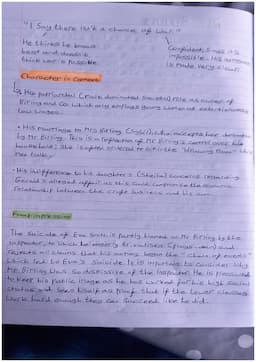 "I say there isn't a chance of war."
He thinks he knows
best and doesn't
think war is possible.
Confident, sees it as
impossible. His
is made very clear.
Character in Context
His patriarchal (male dominated society) role as owner of
Birling and Co which only employs young women at extortionately
low wages.
His marriage to Mrs Birling (Sybil), who accepts her
by Mr Birling. This is a reflection of Mr Birling's control over his
household. She is often directed to
His indifference to his daughter's (Sheila) concerns regarding
Gerald's alleged affair as this could
relationship between the Croft business and his own.
First impressions
The suicide of Eva Smith is partly blamed on Mr Birling by the
inspector, to which he merely
rejects all claims that his actions began the "chain of events"
which led to Eva's suicide. It is important to consider why
Mr Birling was so dismissive of the inspector. He is pressured
to keep his public image as he has worked for his high social
status and sees himself as proof that if the lower classes
work hard enough they can succeed like he did.